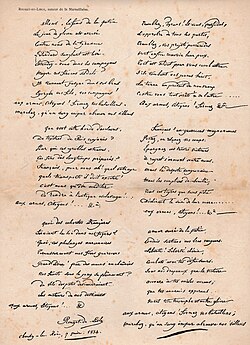 ROUGET-DE-LISLE, auteur de la Marseillaise.
Allons, enfants de la patrie
Le jour de gloire est arrivé
Contre nous de la tyrannie
L'étendard sanglant est levé
Entendez-vous dans les campagnes
Mugir ces féroces soldats
Ils viennent jusque dans vos bras
Égorger vos fils, vos compagnes
aux armes, citoyens! formez vos bataillons:
marchez, qu'un sang impur abreuve nos sillons
Que veut cette horde d'esclaves,
De traîtres, de rois conjurés?
Pour qui ces ignobles entraves,
Ces fers dès longtemps préparés?
Français, pour nous, ah! quel outrage
quels transports il doit exciter!
c'est nous qu'on ose méditer
De rendre à l'antique esclavage...
aux armes, citoyens!
quoi des cohortes étrangères
feraient la loi dans nos foyers?
Quoi, ces phalanges mercenaires
Terrasseraient nos fiers guerriers
De vils despotes deviendraient
les maîtres de nos destinées
aux armes, citoyens!
Rouget de Lisle
Choisy-le-Roi, 1834.
Tremblez, tyrans! et vous, perfides
L'opprobre de tous les partis
Tremblez, vos projets parricides
Vont enfin recevoir leur prix
Tout est soldat pour vous combattre
S'ils tombent, nos jeunes héros,
La terre en produit de nouveaux
aux armes, citoyens! formez
Français! en guerriers magnanimes
Portez, ou retenez vos coups.
Épargnez ces tristes victimes
à regret s'armant contre nous.
mais le despote sanguinaire,
mais les complices de Bouillé,
Tous ces tigres qui sans pitié
Déchirent le sein de leur mère...
aux armes, citoyens!
amour sacré de la patrie
Conduis, soutiens nos bras vengeurs;
Liberté, liberté chérie,
Combats avec tes défenseurs.
Sous nos drapeaux que la victoire
accoure à tes mâles accents,
que tes ennemis expirants
voient ton triomphe et notre gloire
aux armes, citoyens! formez vos bataillons;
marchez, qu'un sang impur abreuve nos sillons